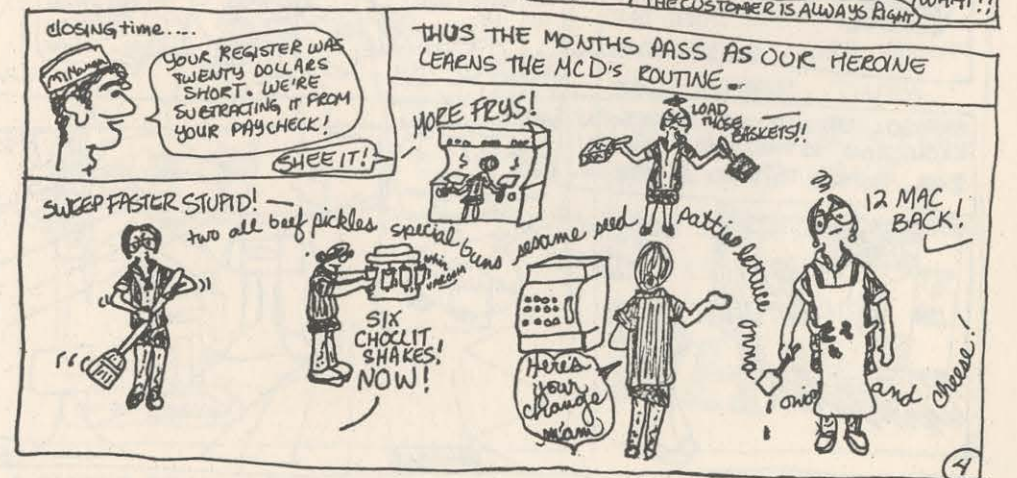 THE CUSTOMER IS ALWAYS RIGHT
WHAT!!
CLOSING time.....
YOUR REGISTER WAS
TWENTY DOLLARS
SHORT. WE'RE
SUBTRACTING IT FROM
YOUR PAYCHECK!
SHEE IT!
THUS THE MONTHS PASS AS OUR HEROINE
LEARNS THE MCD's ROUTINE.
MORE FRYS!
LOAD
THOSE
BASKETS!!
SWEEP FASTER STUPID!
two all beef pickles special buns sesame seed patties lettuce onna
onio and cheese!
12 MAC
BACK!
SIX
CHOCLIT
SHAKES!
NOW!
Here's
your
change
m'am
4